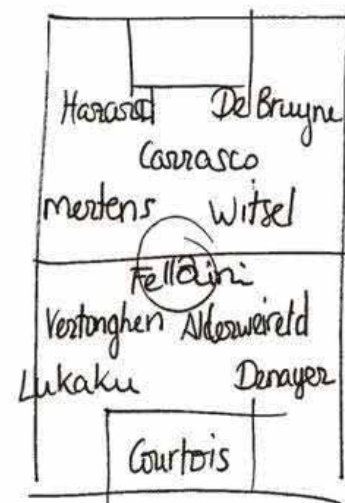 Hazard De Bruyne
Carrasco
Mertens Witsel
Fellaini
Vertonghen Alderweireld
Lukaku Denayer
Courtois